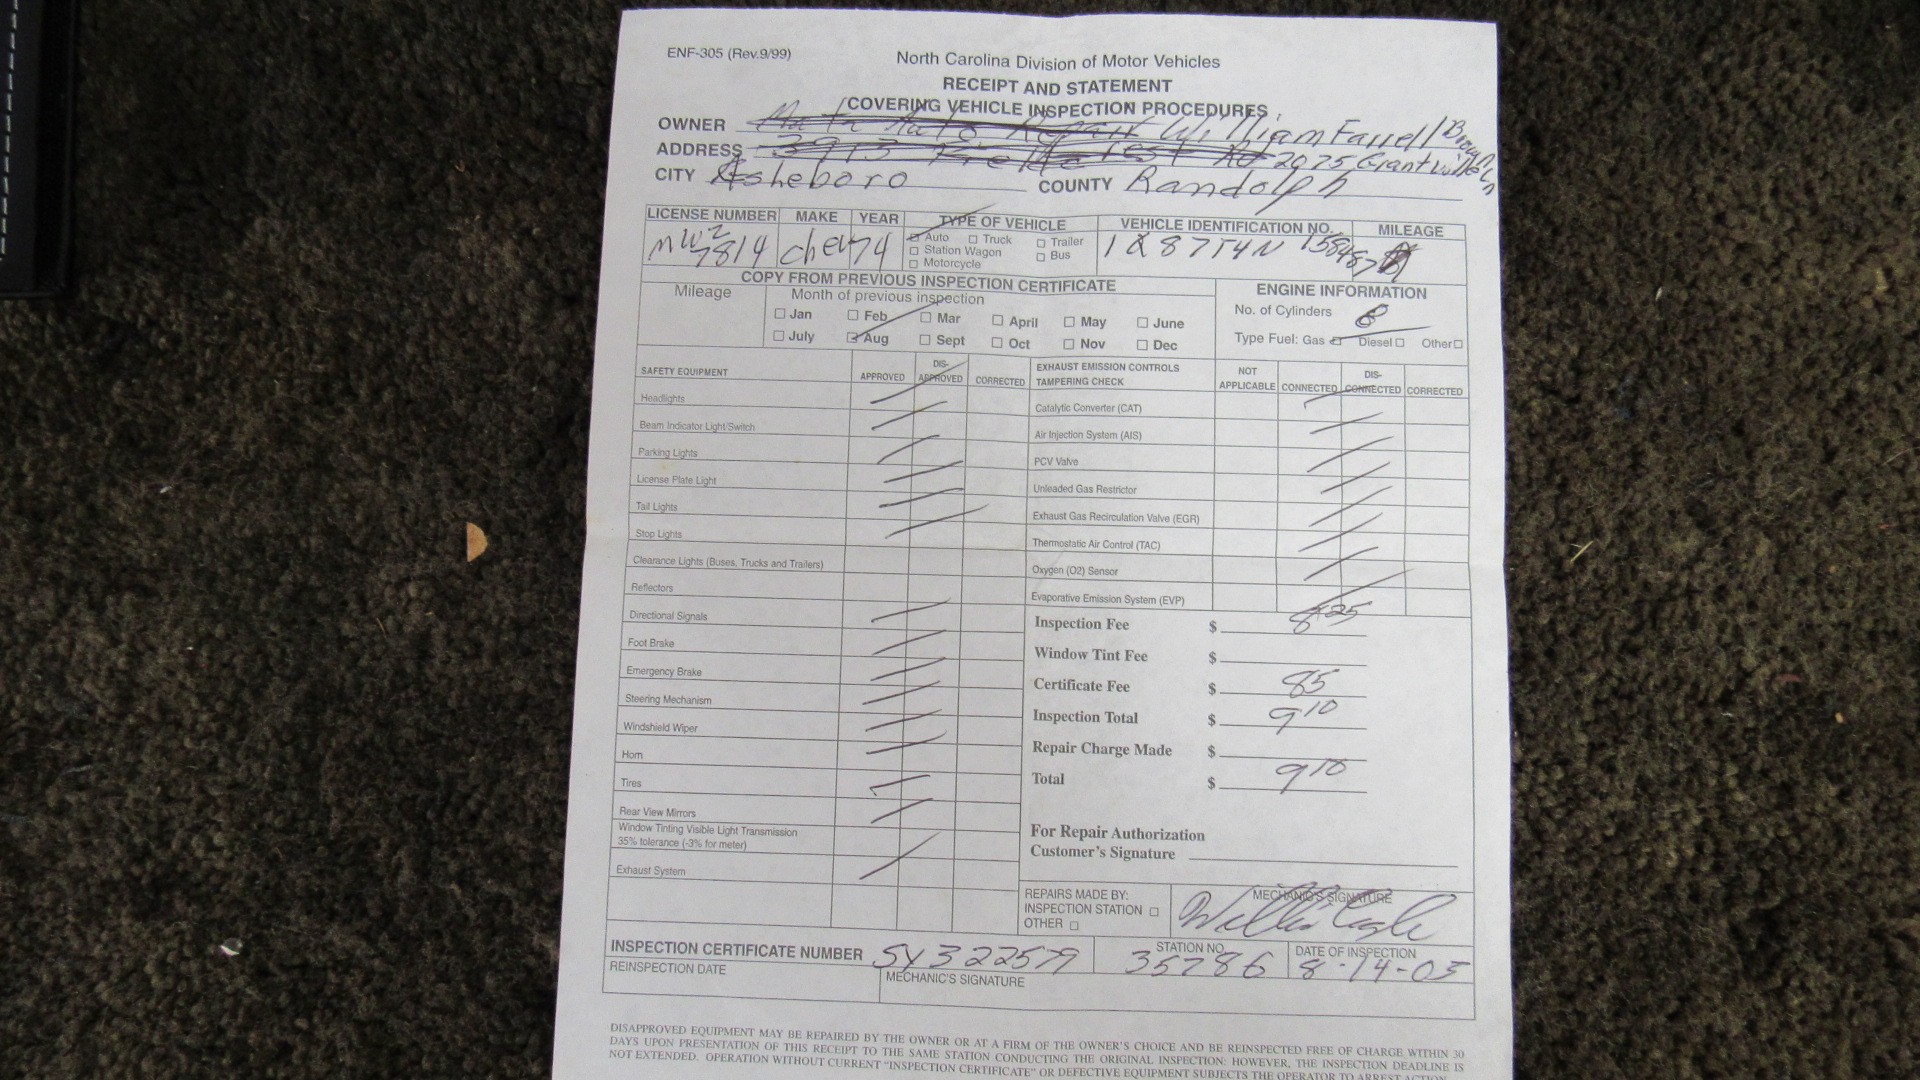 ENF-305 (Rev.9/99)
North Carolina Division of Motor Vehicles
RECEIPT AND STATEMENT
COVERING VEHICLE INSPECTION PROCEDURES
OWNER William Farrell Brown
ADDRESS 2025 Grantville Ln
CITY Asheboro COUNTY Randolph
LICENSE NUMBER MAKE YEAR TYPE OF VEHICLE VEHICLE IDENTIFICATION NO. MILEAGE
MWZ 7814 chev 74 Auto Truck Trailer 1Q87T4N158487
Station Wagon Bus
Motorcycle
COPY FROM PREVIOUS INSPECTION CERTIFICATE ENGINE INFORMATION
Mileage Month of previous inspection No. of Cylinders 8
Jan Feb Mar April May June
July Aug Sept Oct Nov Dec Type Fuel: Gas Diesel Other
SAFETY EQUIPMENT APPROVED DIS-APPROVED CORRECTED EXHAUST EMISSION CONTROLS TAMPERING CHECK NOT APPLICABLE CONNECTED DIS-CONNECTED CORRECTED
Headlights Catalytic Converter (CAT)
Beam Indicator Light/Switch Air Injection System (AIS)
Parking Lights PCV Valve
License Plate Light Unleaded Gas Restrictor
Tail Lights Exhaust Gas Recirculation Valve (EGR)
Stop Lights Thermostatic Air Control (TAC)
Clearance Lights (Buses, Trucks and Trailers) Oxygen (O2) Sensor
Reflectors Evaporative Emission System (EVP)
Directional Signals Inspection Fee $ 8 25
Foot Brake Window Tint Fee $
Emergency Brake Certificate Fee $ 85
Steering Mechanism Inspection Total $ 9 10
Windshield Wiper Repair Charge Made $
Horn Total $ 9 10
Tires
Rear View Mirrors For Repair Authorization
Window Tinting Visible Light Transmission Customer's Signature
35% tolerance (-3% for meter)
Exhaust System
REPAIRS MADE BY: MECHANIC'S SIGNATURE
INSPECTION STATION
OTHER
INSPECTION CERTIFICATE NUMBER SY322579 STATION NO. 35786 DATE OF INSPECTION 8-14-03
REINSPECTION DATE MECHANIC'S SIGNATURE
DISAPPROVED EQUIPMENT MAY BE REPAIRED BY THE OWNER OR AT A FIRM OF THE OWNER'S CHOICE AND BE REINSPECTED FREE OF CHARGE WITHIN 30
DAYS UPON PRESENTATION OF THIS RECEIPT TO THE SAME STATION CONDUCTING THE ORIGINAL INSPECTION; HOWEVER, THE INSPECTION DEADLINE IS
NOT EXTENDED. OPERATION WITHOUT CURRENT "INSPECTION CERTIFICATE" OR DEFECTIVE EQUIPMENT SUBJECTS THE OPERATOR TO ARREST ACTION